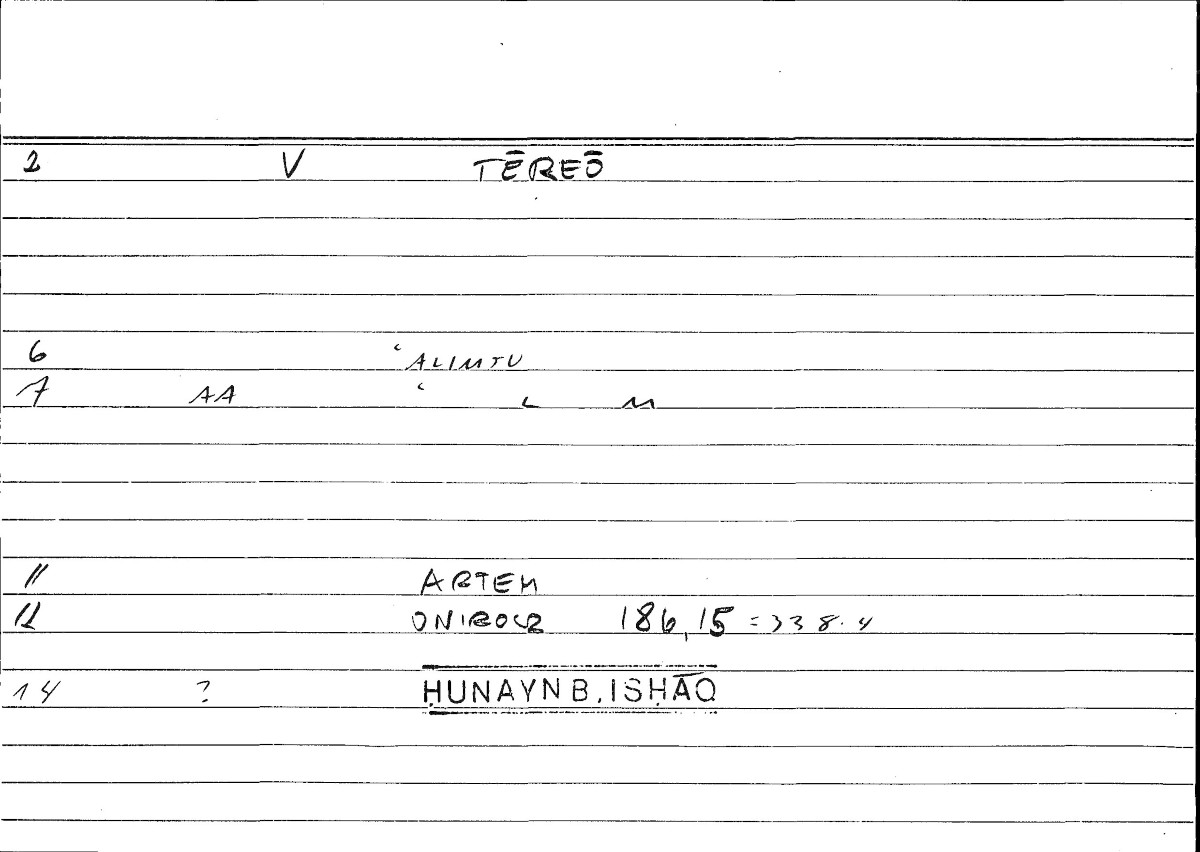 2 V TĒREŌ
6 ʿALIMTU
7 AA ʿ L M
11 ARTEM
12 ONIROCR 186,15 = 338.4
14 ? ḤUNAYN B. ISḤĀQ